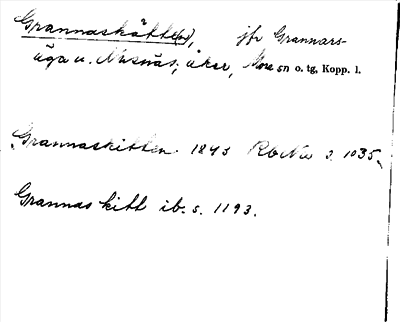 Grannaskätte(n), jfr Grannars-
äga u. Nusnäs, åker, Mora sn o. tg, Kopp. l.
Grannaskitten. 1843 Rb Nu s. 1035.
Grannas kitt ib. s. 1193.